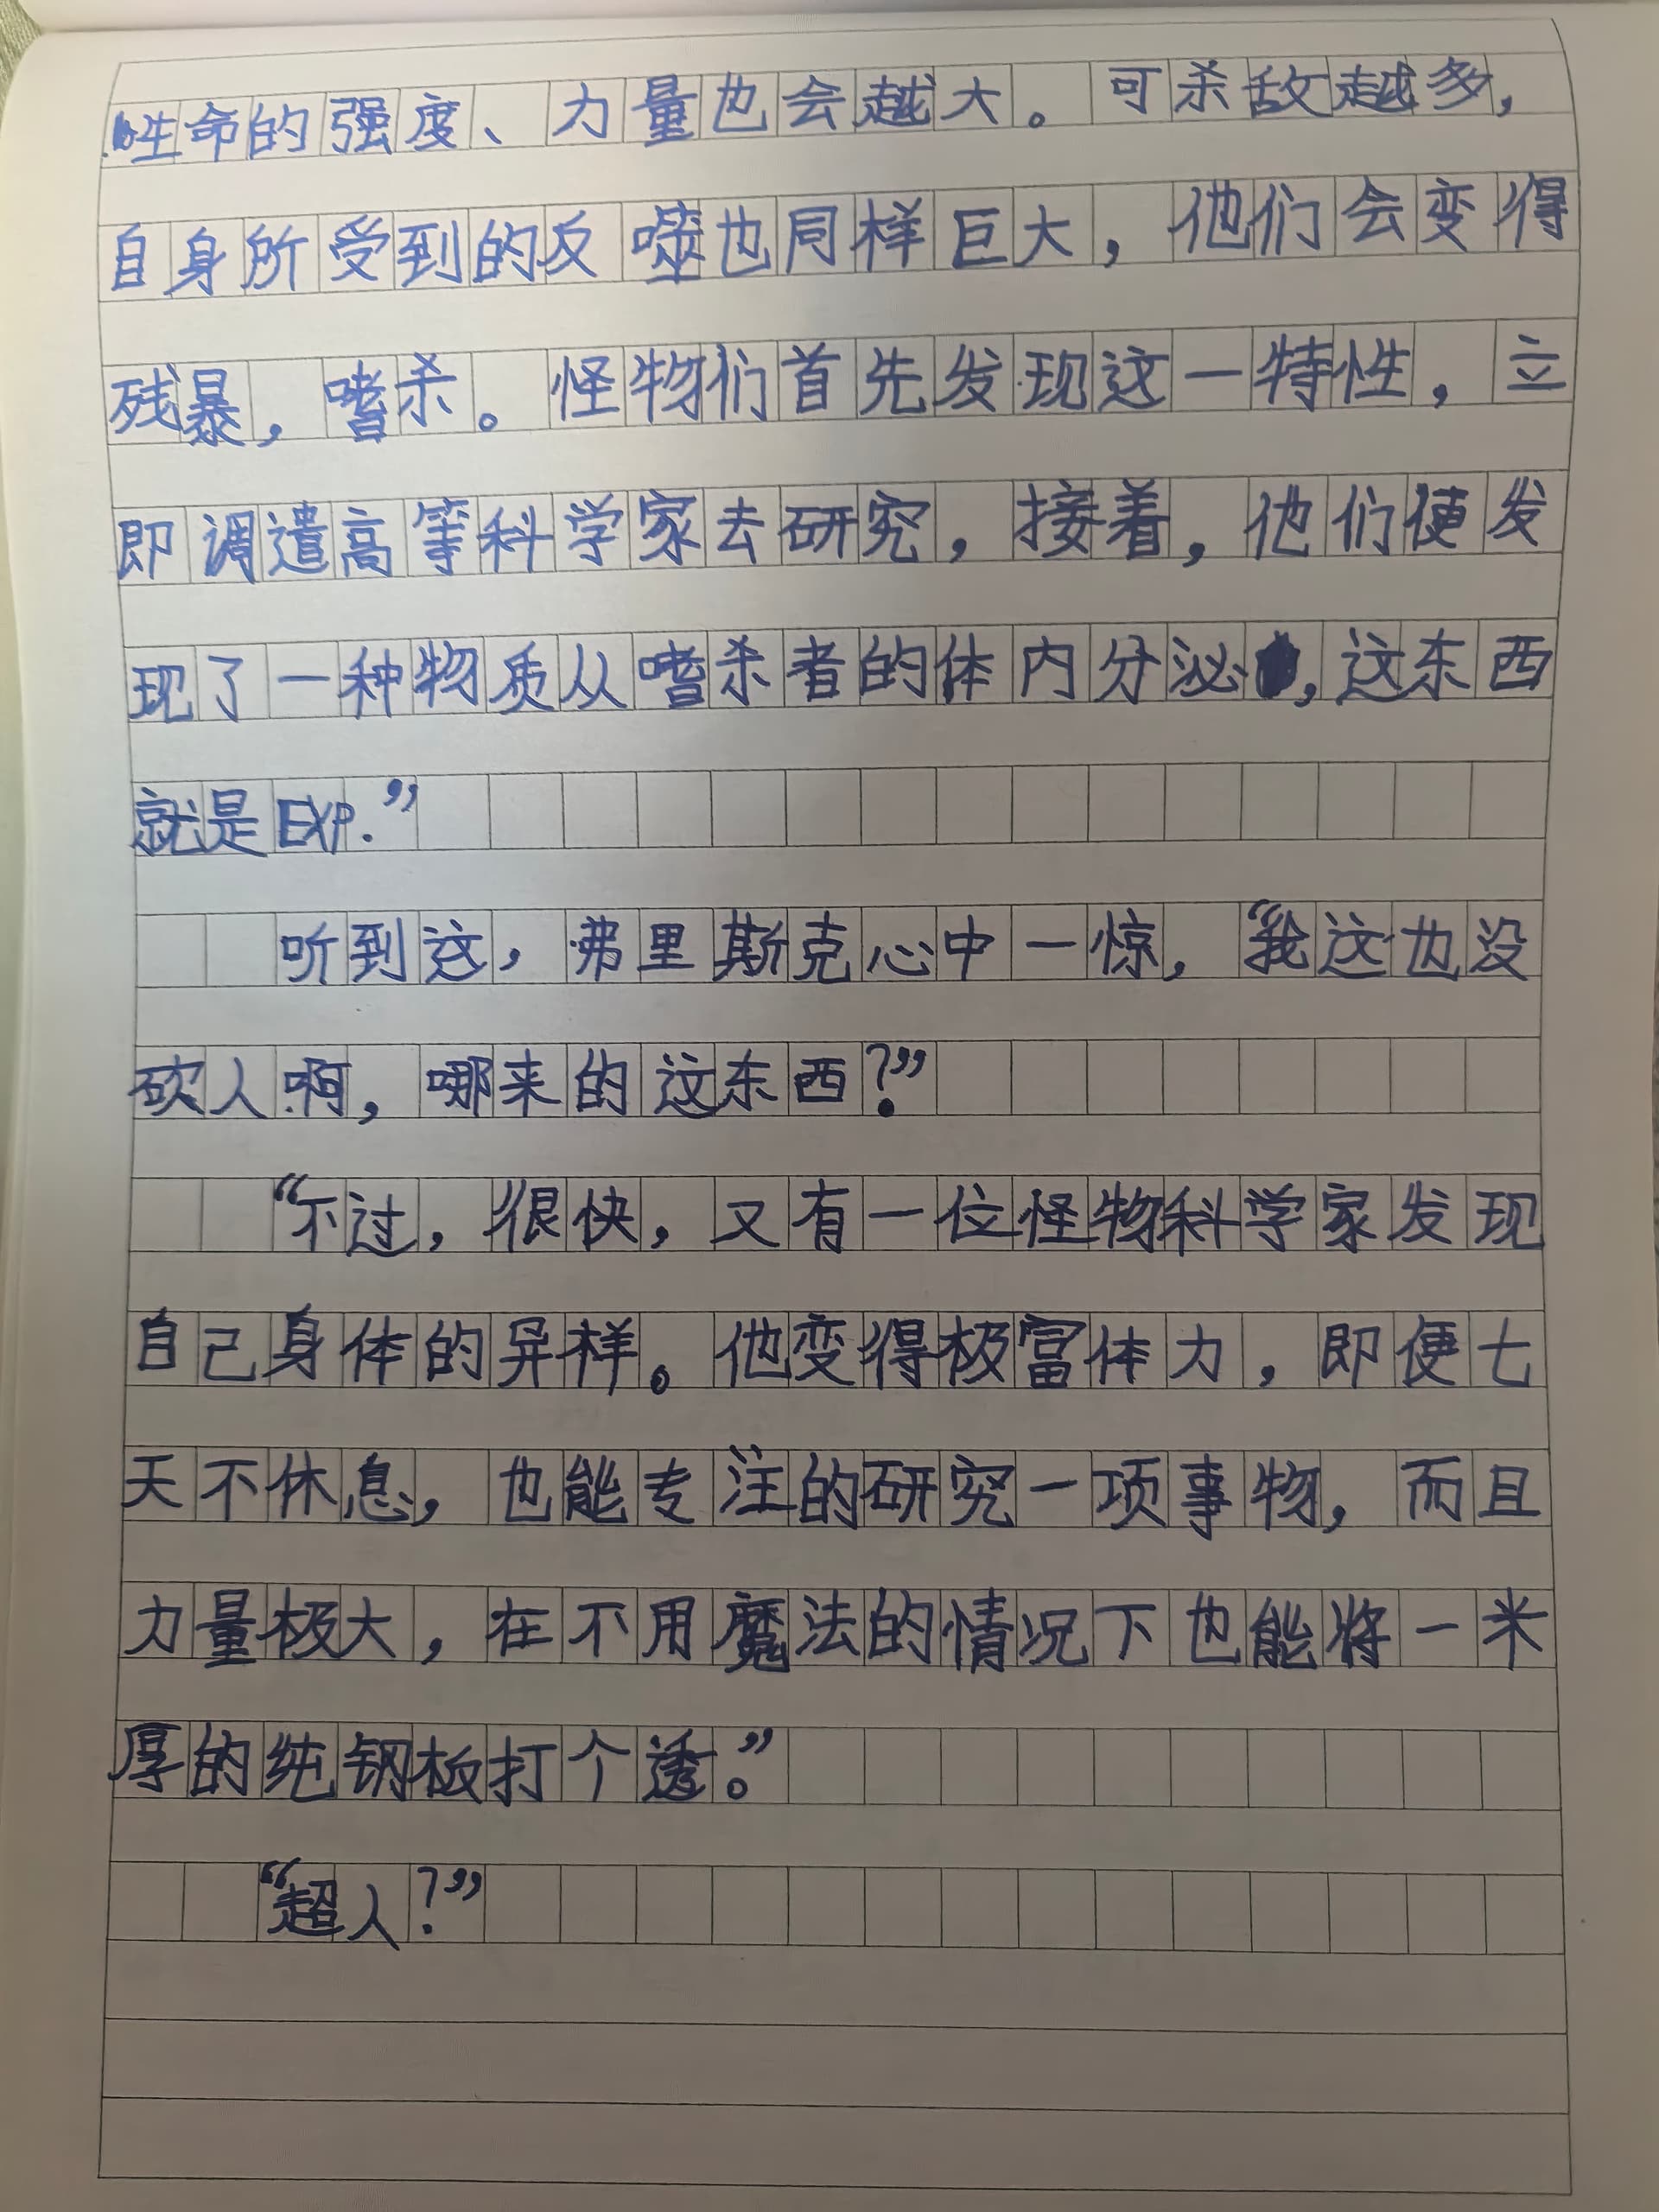 生命的强度、力量也会越大。可杀敌越多，
自身所受到的反噬也同样巨大，他们会变得
残暴，嗜杀。怪物们首先发现这一特性，立
即调遣高等科学家去研究，接着，他们便发
现了一种物质从嗜杀者的体内分泌，这东西
就是EXP.”
听到这，弗里斯克心中一惊，“我这也没
砍人啊，哪来的这东西？”
“不过，很快，又有一位怪物科学家发现
自己身体的异样。他变得极富体力，即便七
天不休息，也能专注的研究一项事物，而且
力量极大，在不用魔法的情况下也能将一米
厚的纯钢板打个透。”
“超人？”